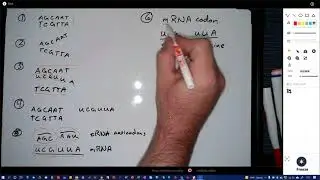 ① AGCAAT
TCGTTA
② AGCAAT
TCGTTA
③ AGCAAT
UCGUUA
TCGTTA
④ AGCAAT UCGUUA
TCGTTA
AGC AAU tRNA anticodons
UCGUUA mRNA
⑥ mRNA codon
U UUA
ine
Freeze